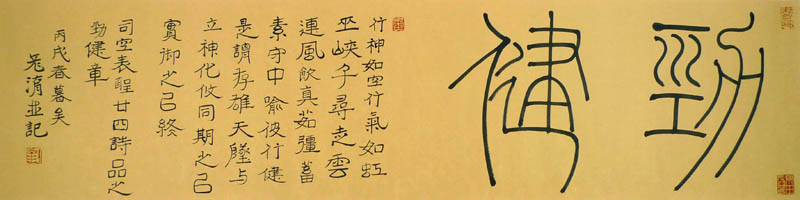 勁健
行神如空行氣如虹
巫峽千尋走雲
連風飲真茹彊蓄
素守中喻彼行健
是謂存雄天墬與
立神化攸同期之㠯
實御之㠯終
司空表聖廿四詩品之
勁健章
丙戌春暮矣
並記